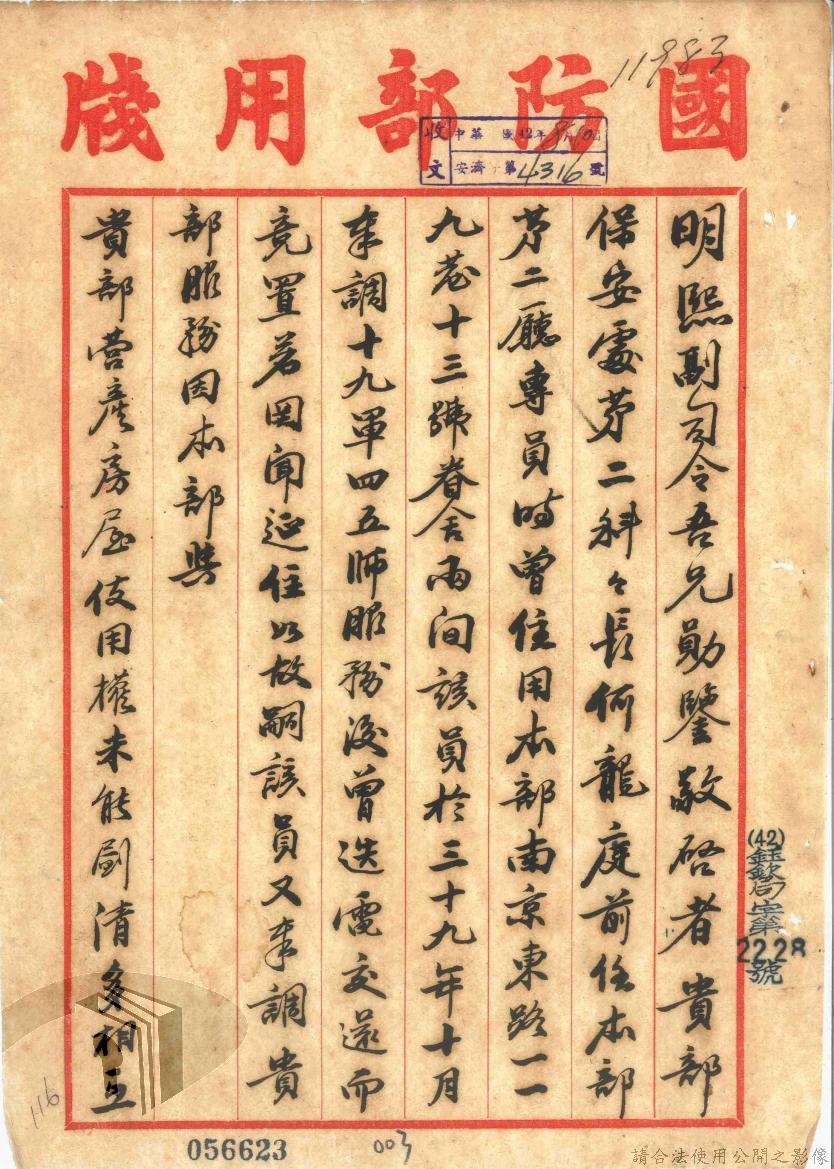 11883
國防部用牋
收文
中華 民 42年8月10日
安濟 字 第4316號
明熙副司令吾兄勛鑒敬啓者貴部
保安處第二科々長何龍庭前任本部
第二廳專員時曾住用本部南京東路一一
九巷十三號眷舍兩间該員於三十九年十月
奉調十九軍四五師服務後曾迭電交還而
竟置若罔聞延住如故嗣該員又奉調貴
部服務因本部與
貴部營產房屋使用權未能劃清多相互
(42)鈺欽局字第2228號
116
056623
003
請合法使用公開之影像